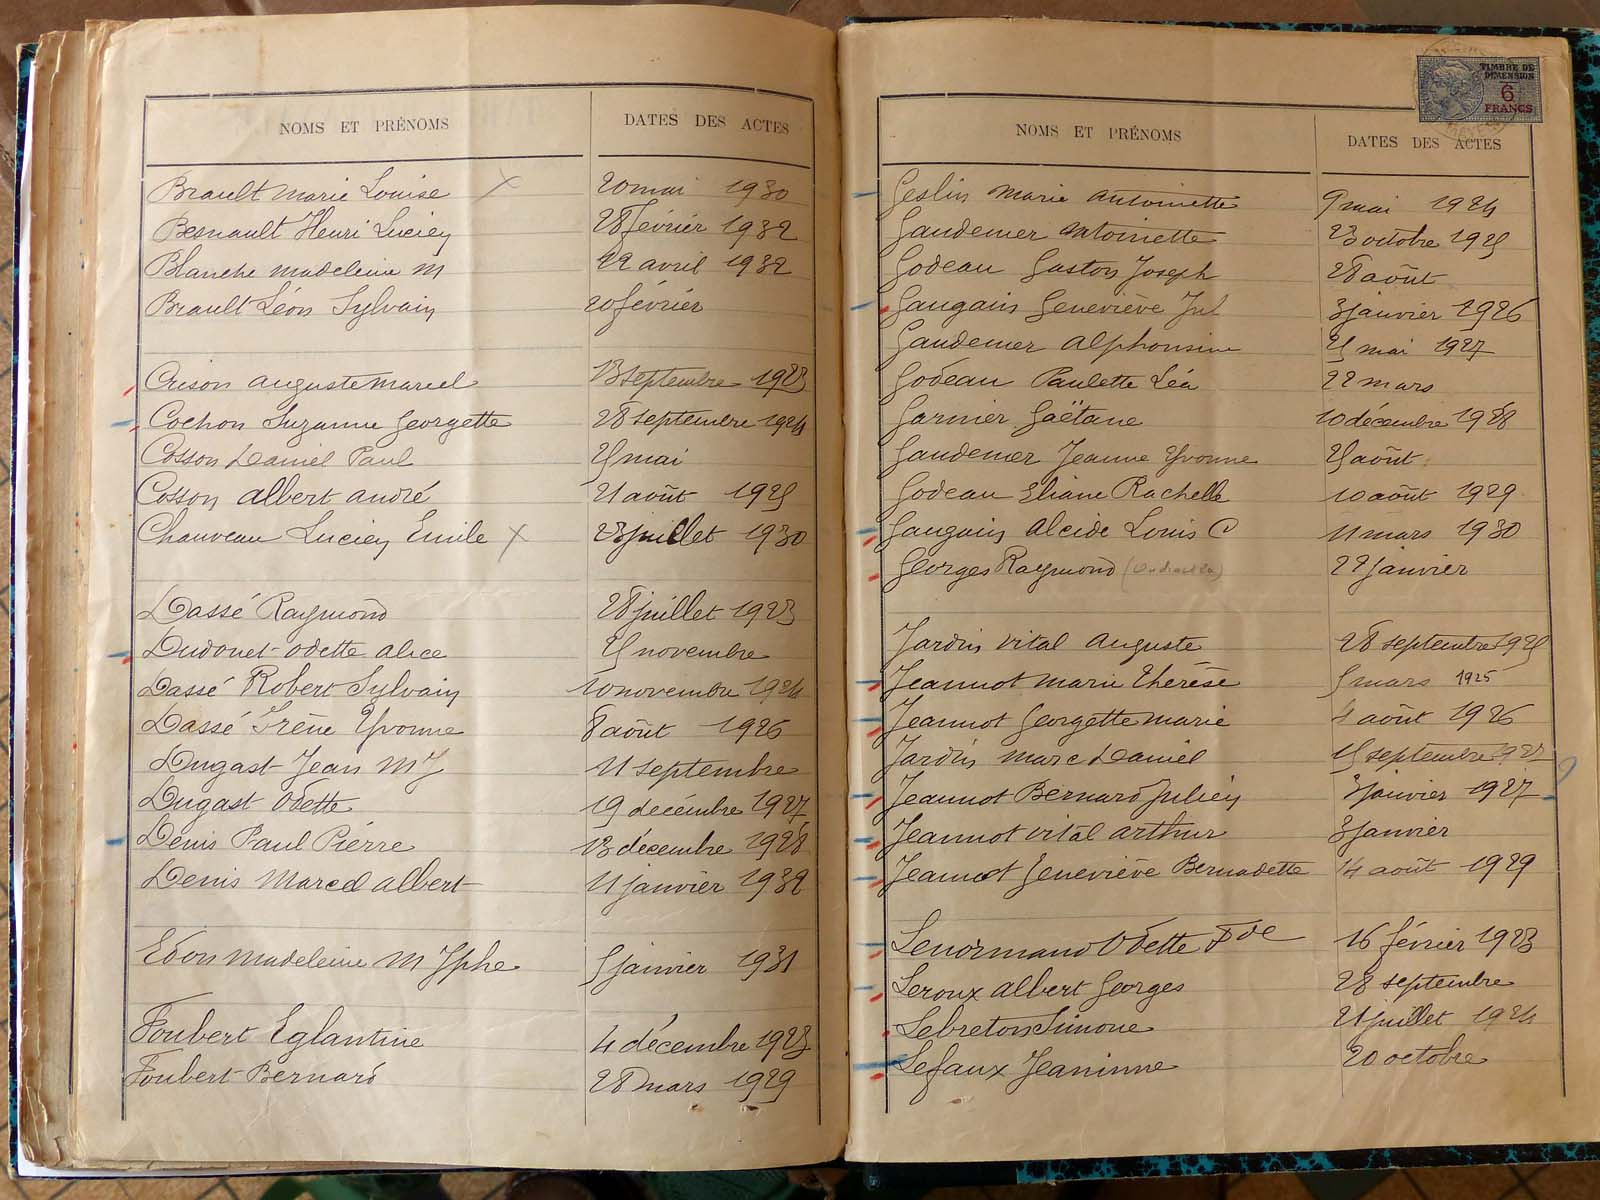 NOMS ET PRÉNOMS DATES DES ACTES
Brault Marie Louise X 20 mai 1930
Besnault Henri Lucien 28 février 1932
Blanche Madeleine M 22 avril 1932
Brault Léon Sylvain 20 février
Crison Auguste Marcel 13 septembre 1923
Cochon Suzanne Georgette 28 septembre 1924
Cosson Daniel Paul 25 mai
Cosson Albert André 21 août 1925
Chauveau Lucien Emile X 23 juillet 1930
Dassé Raymond 28 juillet 1923
Dudouet Odette Alice 25 novembre
Dassé Robert Sylvain 10 novembre 1924
Dassé Irène Yvonne 8 août 1926
Dugast Jean M J 11 septembre
Dugast Odette 19 décembre 1927
Denis Paul Pierre 13 décembre 1928
Denis Marcel Albert 11 janvier 1932
Edon Madeleine M Jphe 5 janvier 1931
Foubert Eglantine 4 décembre 1923
Foubert Bernard 28 mars 1929
TIMBRE DE
DIMENSION
6
FRANCS
NOMS ET PRÉNOMS DATES DES ACTES
Geslin Marie Antoinette 9 mai 1924
Gaudemer Antoinette 23 octobre 1925
Godeau Gaston Joseph 28 août
Gaugain Geneviève Jul 3 janvier 1926
Gaudemer Alphonsine 25 mai 1927
Godeau Paulette Léa 22 mars
Garnier Gaëtane 10 décembre 1928
Gaudemer Jeanne Yvonne 25 août
Godeau Eliane Rachelle 10 août 1929
Gaugain Alcide Louis C 11 mars 1930
Georges Raymond 22 janvier
Jardin Vital Auguste 28 septembre 1925
Jeannot Marie Thérèse 5 mars 1925
Jeannot Georgette Marie 4 août 1926
Jardin Marc Daniel 15 septembre
Jeannot Bernard Julien 3 janvier 1927
Jeannot Vital Arthur 3 janvier
Jeannot Geneviève Bernadette 14 août 1929
Lenormand Odette Fde 16 février 1923
Leroux Albert Georges 28 septembre
Lebreton Simone 21 juillet 1924
Lefaux Jeaninne 20 octobre